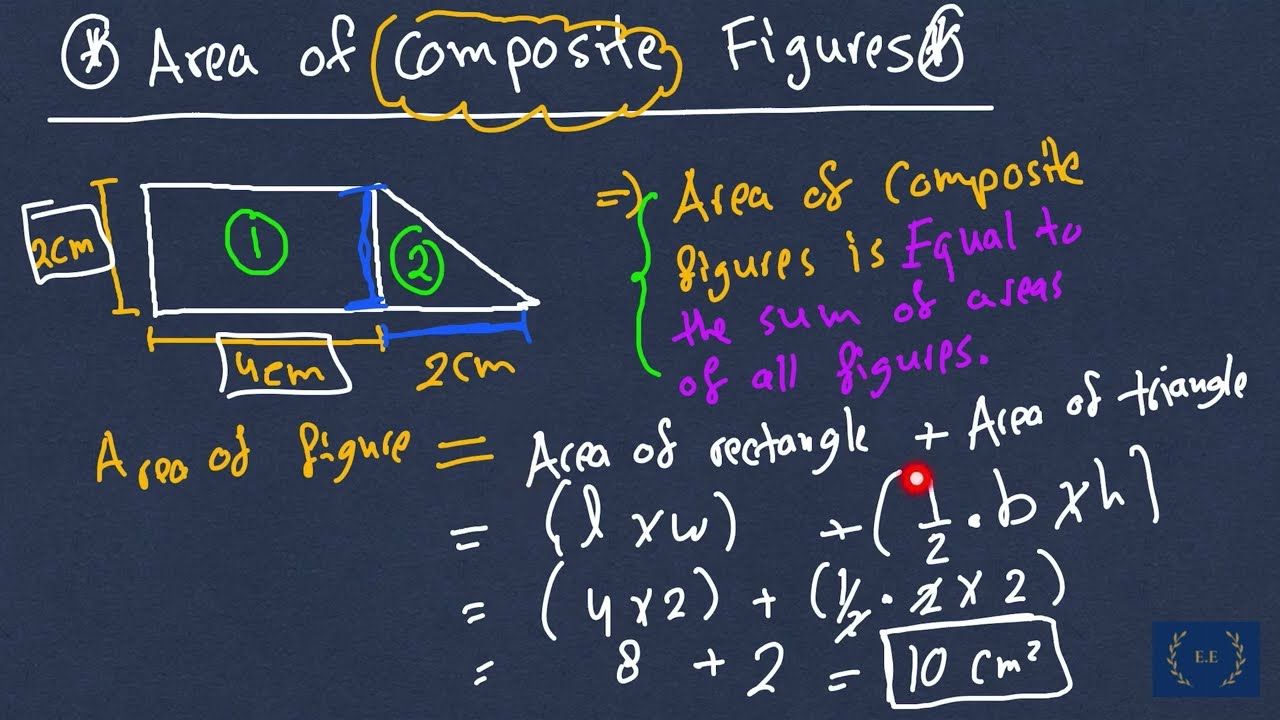 * Area of Composite Figures *
2cm
1
2
4cm
2cm
=> Area of Composite
figures is Equal to
the sum of areas
of all figures.
Area of figure = Area of rectangle + Area of triangle
= (l x w) + (1/2 · b x h)
= (4 x 2) + (1/2 · 2 x 2)
= 8 + 2 = 10 cm²
E.E